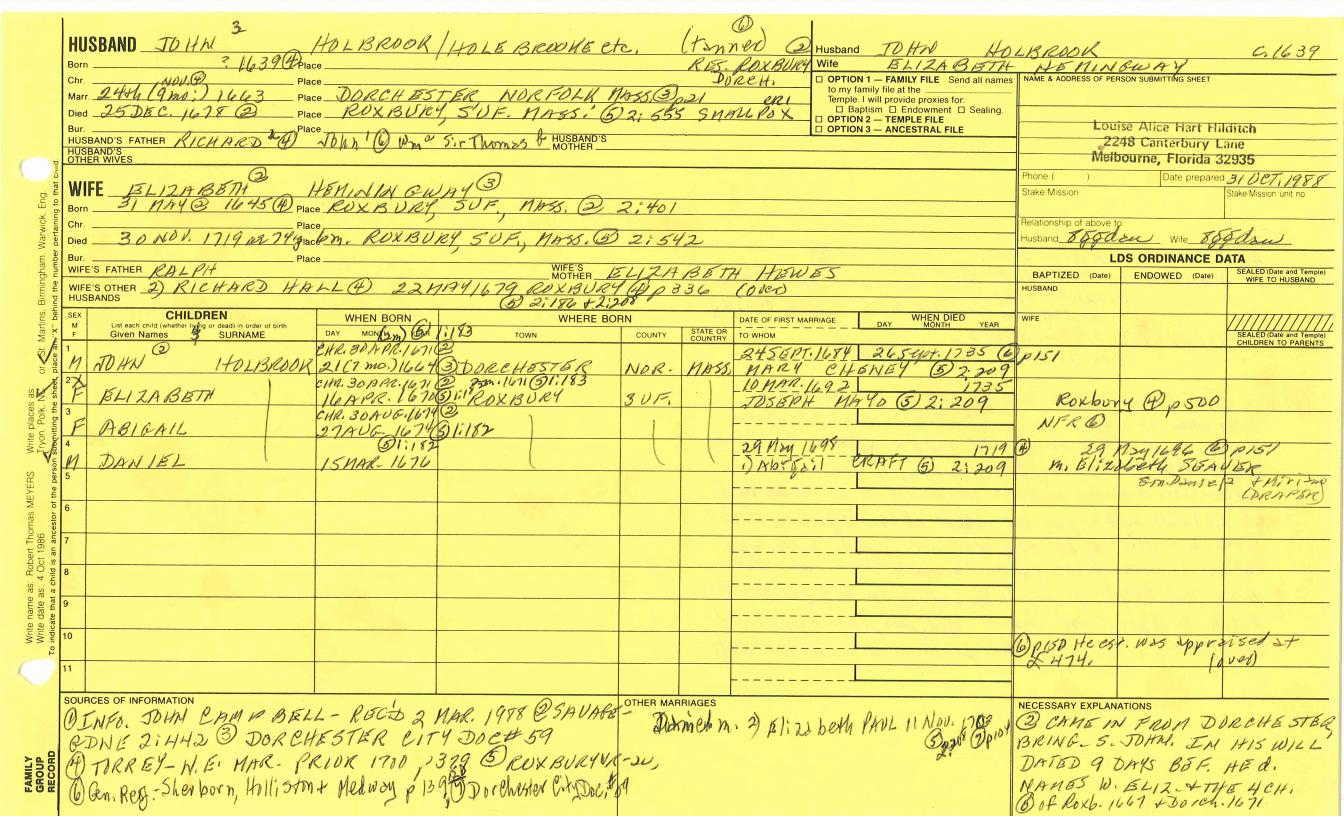 3
HUSBAND JOHN HOLBROOK/HOLEBROOKE etc. (tanner) ⑥ ②
Born ? 1639 ④ Place RES. ROXBURY
Chr. NOV. ④ Place DORCH.
Marr 24th (9mo:) 1663 Place DORCHESTER NORFOLK MASS. ③ p21
Died 25 DEC. 1678 ② Place ROXBURY, SUF. MASS. ⑤ 2:555 SMALLPOX
Bur. Place
HUSBAND'S FATHER RICHARD ④ John ⑥ Wm Sir Thomas HUSBAND'S MOTHER
HUSBAND'S OTHER WIVES
WIFE ELIZABETH ② HEMININGWAY ③
Born 31 MAY ② 1645 ④ Place ROXBURY, SUF., MASS. ② 2:401
Chr. Place
Died 30 NOV. 1719 ROXBURY, SUF., MASS. ⑤ 2:542
Bur. Place
WIFE'S FATHER RALPH WIFE'S MOTHER ELIZABETH HEWES
WIFE'S OTHER HUSBANDS 2) RICHARD HALL ④ 22 MAY 1679 ROXBURY ④ p336 (over)
⑤ 2:186 + 2:208
Husband JOHN HOLBROOK C.1639
Wife ELIZABETH HEMINGWAY
OPTION 1 — FAMILY FILE Send all names
to my family file at the
Temple. I will provide proxies for:
Baptism Endowment Sealing.
OPTION 2 — TEMPLE FILE
OPTION 3 — ANCESTRAL FILE
NAME & ADDRESS OF PERSON SUBMITTING SHEET
Louise Alice Hart Hilditch
2248 Canterbury Lane
Melbourne, Florida 32935
Phone ( ) Date prepared 31 OCT, 1988
Stake Mission Stake Mission unit no.
Relationship of above to:
Husband 8ggdau Wife 8ggdau
LDS ORDINANCE DATA
BAPTIZED (Date) ENDOWED (Date) SEALED (Date and Temple) WIFE TO HUSBAND
HUSBAND
WIFE
SEALED (Date and Temple) CHILDREN TO PARENTS
SEX M F
CHILDREN
List each child (whether living or dead) in order of birth
Given Names SURNAME
WHEN BORN
DAY MONTH
WHERE BORN
TOWN COUNTY STATE OR COUNTRY
DATE OF FIRST MARRIAGE
TO WHOM
WHEN DIED
DAY MONTH YEAR
1 CHR. 30 APR. 1671 ② 24 SEPT. 1684 26 Sept. 1735 ⑥ p151
M JOHN ② HOLBROOK 21 (7 mo.) 1664 ③ DORCHESTER NOR- MASS MARY CHENEY ⑤ 2:209
2 X CHR. 30 APR. 1671 ② ⑤ 1:183 10 MAR. 1692 1735
F ELIZABETH 16 APR. 1670 ROXBURY SUF. JOSEPH MAYO ⑤ 2:209 Roxbury ④ p500
3 CHR. 30 AUG. 1674 ② NFR ⑥
F ABIGAIL 27 AUG 1674 ⑤ 1:182
4 ⑤ 1:182 29 May 1698 1719 ④ 29 May 1696 ⑥ p151
M DANIEL 15 MAR. 1676 1) Abigail CRAFT ⑤ 2:209 m. Elizabeth SEAVER
+ Miriam
(DRAPER)
5
6
7
8
9
10
11
⑥ p150 He est. was appraised at
£474. (over)
SOURCES OF INFORMATION
① INFO. JOHN CAMPBELL - REC'D 2 MAR. 1988 ② SAVAGE-
GDNE 2:442 ③ DORCHESTER CITY DOC# 59
④ TORREY - N.E. MAR. PRIOR 1700, p379 ⑤ ROXBURY VR
⑥ Gen. Reg. - Sherborn, Holliston + Medway p 139 ⑦ Dorchester City Doc. # 59
OTHER MARRIAGES
Daniel m. 2) Elizabeth PAUL 11 NOV. 1703
⑤ 2:208 ⑦ p104
NECESSARY EXPLANATIONS
② CAME IN FROM DORCHESTER,
BRING. S. JOHN. IN HIS WILL
DATED 9 DAYS BEF. HE d.
NAMES W. ELIZ. + THE 4 CH.
⑥ of Roxb. 1667 + Dorch. 1671
FAMILY GROUP RECORD
Write name as: Robert Thomas MEYERS Write places as: Tryon, Polk, N.C. or St. Martins, Birmingham, Warwick, Eng.
Write date as: 4 Oct 1986
To indicate that a child is an ancestor of the person submitting the sheet, place an "X" behind the number pertaining to that child